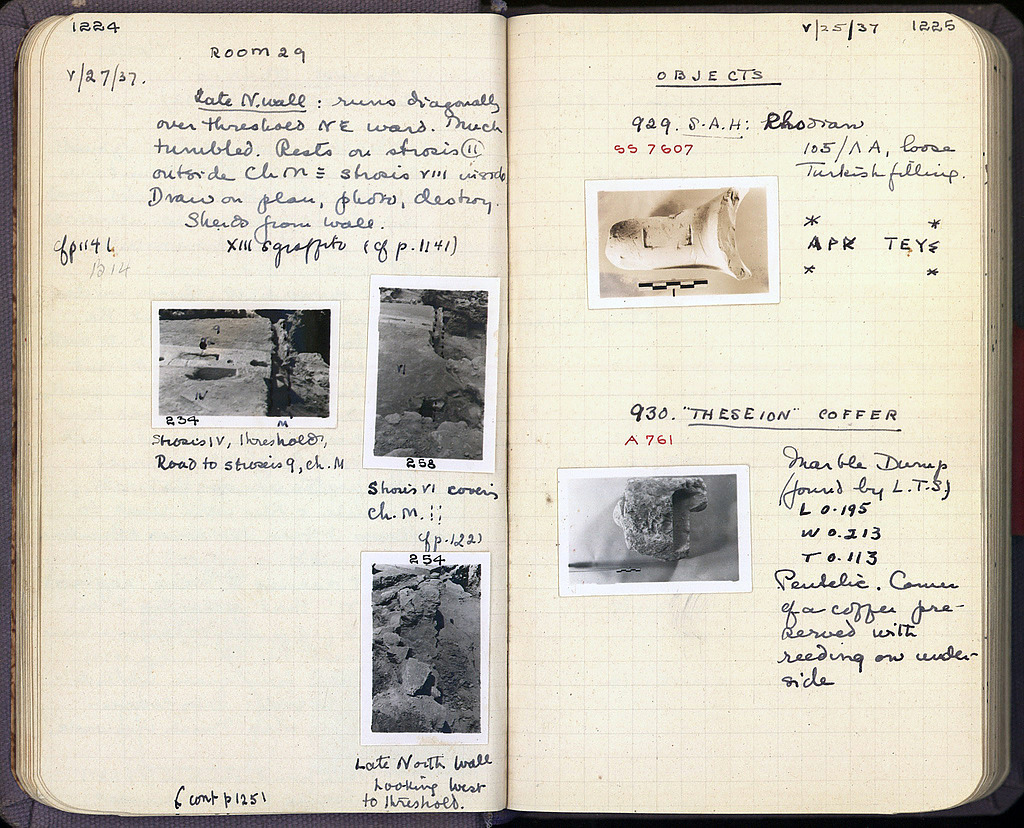 1224
ROOM 29
V/27/37.
Late N. wall : runs diagonally
over threshold NE ward. Much
tumbled. Rests on strosis 11
outside Ch M ≡ strosis VIII inside
Draw on plan, photo, destroy.
Sherds from wall.
cf p 1141 XIII sgraffito (cf p. 1141)
1214
9
IV
234 M
Strosis IV, threshold,
Road to strosis 9, ch. M
VI
258
Strosis VI covering
Ch. M. !!
cf p. 1223
254
Late North wall
looking West
to threshold.
(cont p 1251
V/25/37 1225
OBJECTS
929. S.A.H: Rhodian
SS 7607
105/ΛA, loose
Turkish filling.
* *
APK TEYS
* *
930. "THESEION" COFFER
A 761
Marble Dump
(found by L.T.S)
L 0.195
W 0.213
T 0.113
Pentelic. Corner
of a coffer pre-
served with
reeding on under-
side